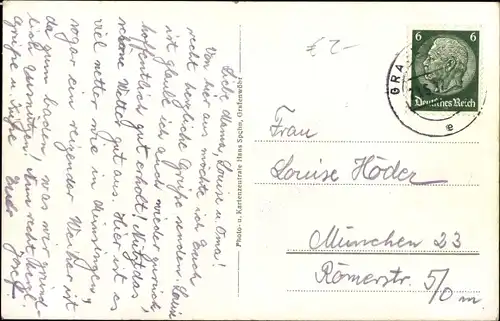 Liebe Mama, Louise u. Oma!
Von hier aus möchte ich Euch
recht herzliche Grüße senden. Louise
ist glaub ich auch wieder zurück,
hoffentlich gut erholt! Nützt das
schöne Wetter gut aus. Hier ist es
viel netter wie in Meiningen,
sogar ein reizender Weiher ist
da zum baden! was wir
Nun recht herzl.
Grüße u. Küße Euer
Josef
Photo- u. Kartenzentrale Hans Spahn, Grafenwöhr
£ 2-
6 6
Deutsches Reich
GRA
e
Frau
Louise Höder
München 23
Römerstr. 5/0 m